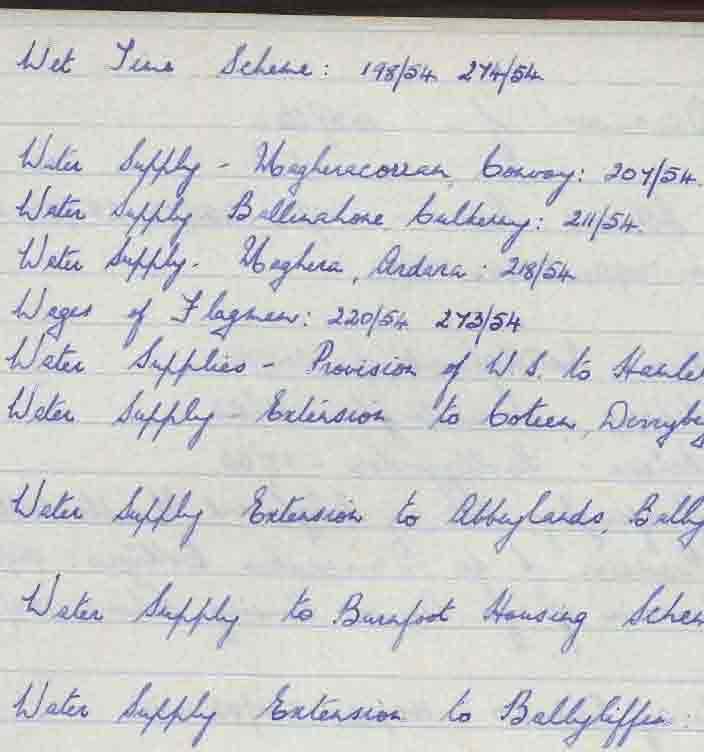 Wet Time Scheme: 198/54 274/54
Water Supply - Magheracorran, Convoy: 207/54.
Water Supply Ballinahone, Culkeeny: 211/54.
Water Supply - Maghera, Ardara: 218/54
Wages of Flagmen: 220/54 273/54
Water Supplies - Provision of W.S. to
Water Supply - Extension to Coteen,
Water Supply Extension to Abbeylands,
Water Supply to Burnfoot Housing
Water Supply Extension to Ballyliffin: